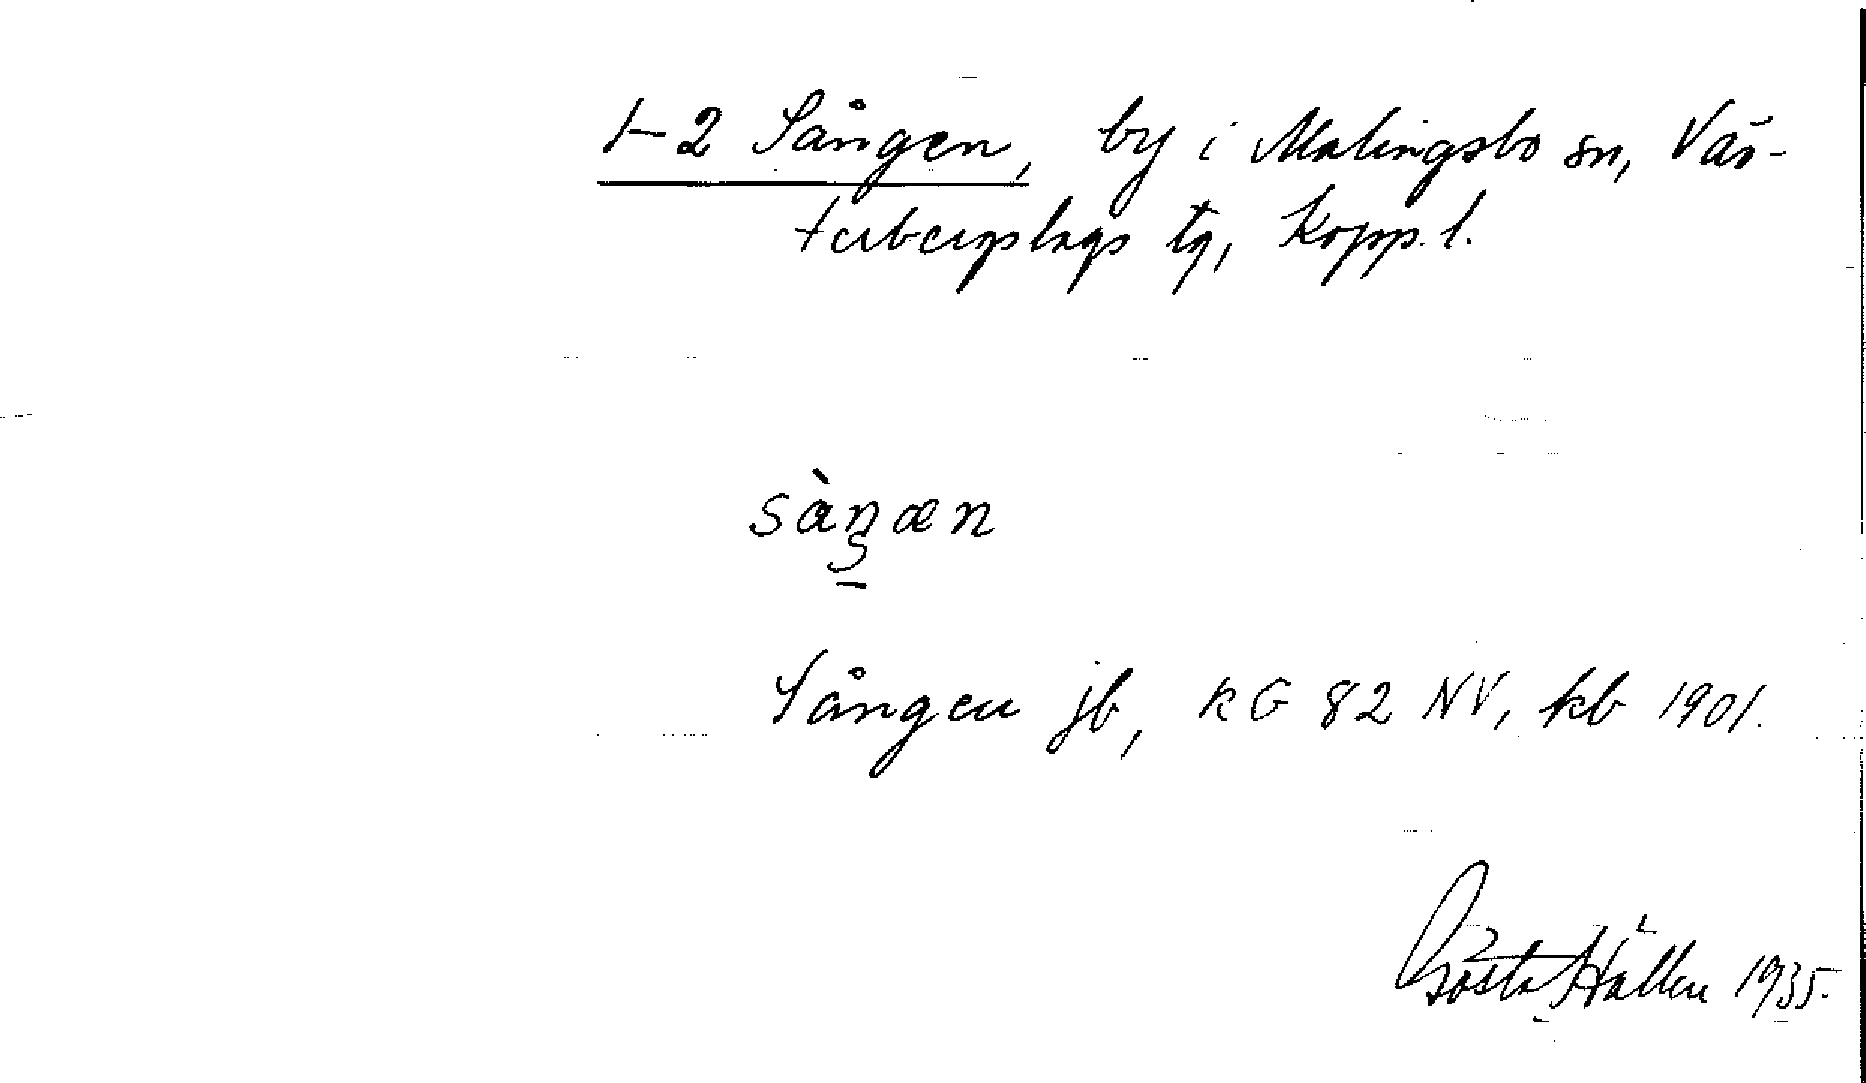 1-2 Sången, by i Malingsbo sn, Väs-
terbergslags tg, Kopp. l.
sàŋæn
Sången jb, KG 82 NV, kb 1901.
Gösta Hallen 1935.